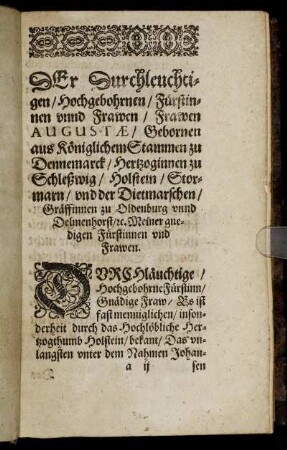 DEr Durchleuchti-
gen / Hochgebohrnen / Fürstin-
nen vnnd Frawen / Frawen
AUGUSTÆ / Gebornen
aus Königlichem Stammen zu
Dennemarck / Hertzoginnen zu
Schleßwig / Holstein / Stor-
marn / vnd der Dietmarschen /
Gräffinnen zu Oldenburg vnnd
Delmenhorst / ꝛc. Meiner gne-
digen Fürstinnen vnd
Frawen.
DVRCHläuchtige /
Hochgebohrne Fürstinn /
Gnädige Fraw / Es ist
fast menniglichen / inson-
derheit durch das Hochlöbliche Her-
tzogthumb Holstein / bekant / Das vn-
langsten vnter dem Nahmen Johan-
a ij sen